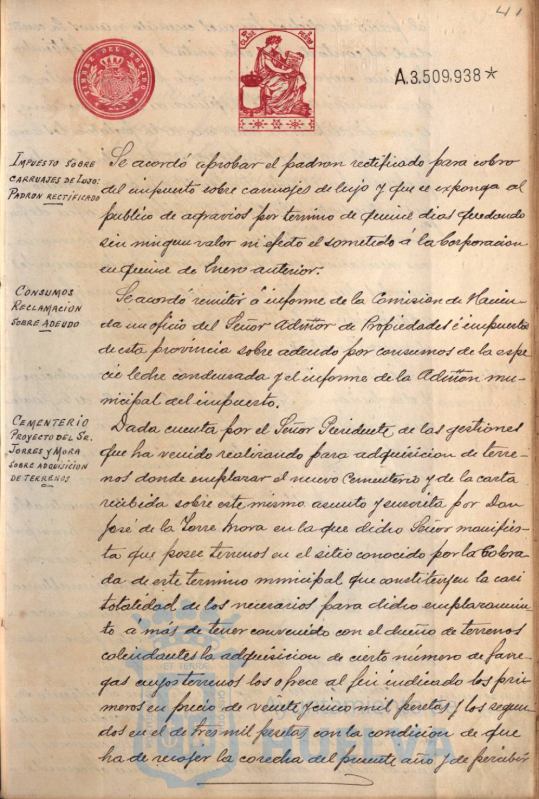 41
TIMBRE DEL ESTADO
A.3.509,938*
IMPUESTO SOBRE
CARRUAJES DE LUJO:
PADRON RECTIFICADO
Se acordó aprobar el padron rectificado para cobro
del impuesto sobre carruajes de lujo y que se exponga al
publico de agravios por termino de quince dias quedando
sin ningun valor ni efecto el sometido á la Corporacion
en quince de Enero anterior.
CONSUMOS
RECLAMACION
SOBRE ADEUDO
Se acordó remitir á informe de la Comision de Hacien-
da un oficio del Señor Admor de Propiedades é impuestos
de esta provincia sobre adeudo por consumos de la espe-
cie leche condensada y el informe de la Admon mu-
nicipal del impuesto.
CEMENTERIO
PROYECTO DEL SR.
TORRES Y MORA
SOBRE ADQUISICION
DE TERRENOS
Dada cuenta por el Señor Presidente de las gestiones
que ha venido realizando para adquisicion de terre-
nos donde emplazar el nuevo Cementerio y de la carta
recibida sobre este mismo asunto y suscrita por Don
José de la Torre Mora en la que dicho Señor manifies-
ta que posee terrenos en el sitio conocido por la Colora-
da de este termino municipal que constituyen la casi
totalidad de los necesarios para dicho emplazamien-
to a más de tener convenido con el dueño de terrenos
colindantes la adquisicion de cierto número de fane-
gas cuyos terrenos los ofrece al fin indicado los pri-
meros en precio de veinte y cinco mil pesetas y los segun-
dos en el de tres mil pesetas con la condicion de que
ha de recojer la cosecha del presente año y de percibir
HUELVA